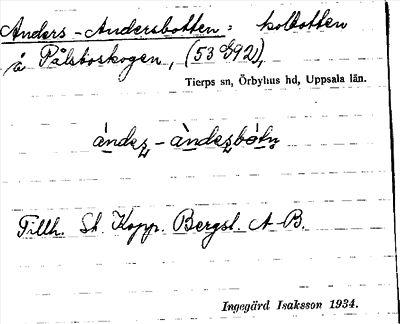 Anders-Andersbotten: kolbotten
å Pålsboskogen, (53 G92),
Tierps sn, Örbyhus hd, Uppsala län.
ández - àndezbòtṇ
Tillh. St. Kopp. Bergsl. A-B.
Ingegärd Isaksson 1934.